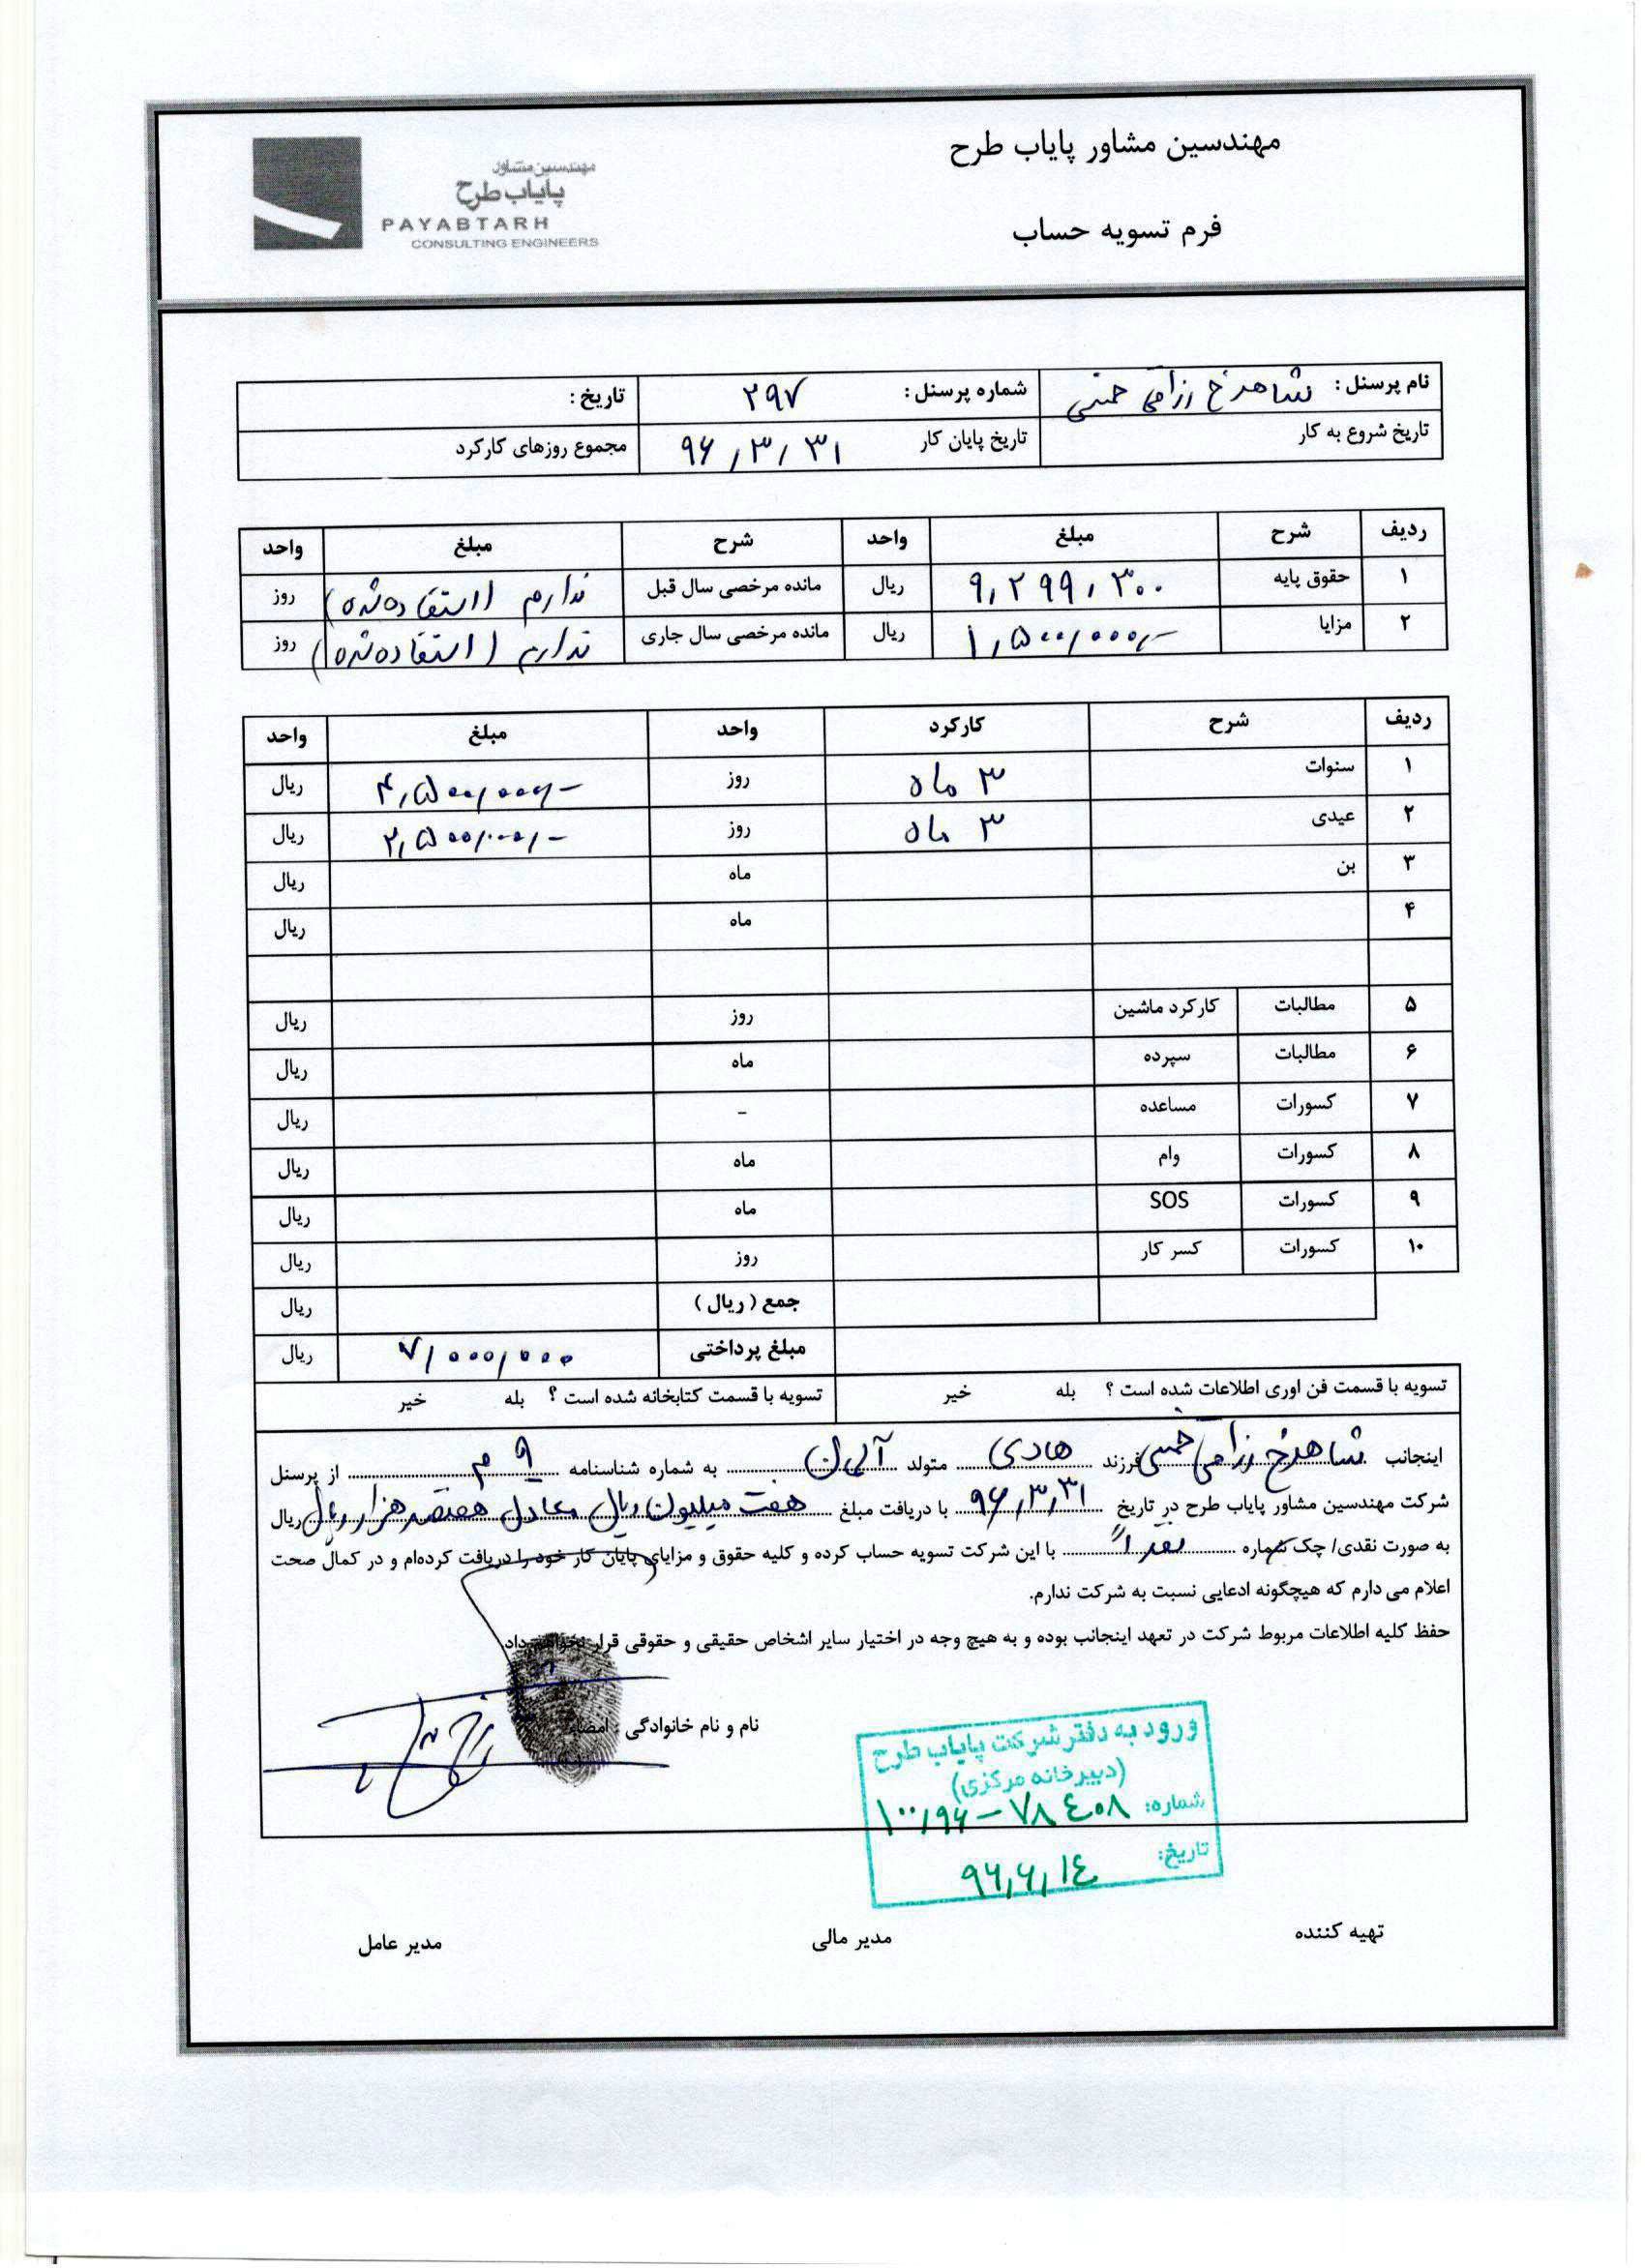 مهندسین مشاور پایاب طرح
فرم تسویه حساب
مهندسین مشاور
پایاب طرح
PAYABTARH
CONSULTING ENGINEERS
نام پرسنل : شاهرخ رزامی حسنی شماره پرسنل : ۲۹۷ تاریخ :
تاریخ شروع به کار تاریخ پایان کار ۹۶/۳/۳۱ مجموع روزهای کارکرد
ردیف شرح مبلغ واحد شرح مبلغ واحد
۱ حقوق پایه ۹,۲۹۹,۳۰۰ ریال مانده مرخصی سال قبل ندارم (استفاده شده) روز
۲ مزایا ۱,۵۰۰,۰۰۰,- ریال مانده مرخصی سال جاری ندارم (استفاده شده) روز
ردیف شرح کارکرد واحد مبلغ واحد
۱ سنوات ۳ ماه روز ۴,۵۰۰,۰۰۰,- ریال
۲ عیدی ۳ ماه روز ۲,۵۰۰,۰۰۰,- ریال
۳ بن ماه ریال
۴ ماه ریال
۵ مطالبات کارکرد ماشین روز ریال
۶ مطالبات سپرده ماه ریال
۷ کسورات مساعده - ریال
۸ کسورات وام ماه ریال
۹ کسورات SOS ماه ریال
۱۰ کسورات کسر کار روز ریال
جمع ( ریال ) ریال
مبلغ پرداختی ۷,۰۰۰,۰۰۰ ریال
تسویه با قسمت فن اوری اطلاعات شده است ؟ بله خیر تسویه با قسمت کتابخانه شده است ؟ بله خیر
اینجانب شاهرخ رزامی حسنی فرزند هادی متولد به شماره شناسنامه از پرسنل
شرکت مهندسین مشاور پایاب طرح در تاریخ ۹۶/۳/۳۱ با دریافت مبلغ هفت میلیون ریال معادل هفتصد هزار ریال
به صورت نقدی/ چک شماره نقداً با این شرکت تسویه حساب کرده و کلیه حقوق و مزایای پایان کار خود را دریافت کرده‌ام و در کمال صحت
اعلام می دارم که هیچگونه ادعایی نسبت به شرکت ندارم.
حفظ کلیه اطلاعات مربوط شرکت در تعهد اینجانب بوده و به هیچ وجه در اختیار سایر اشخاص حقیقی و حقوقی قرار نخواهم داد.
نام و نام خانوادگی : امضاء
ورود به دفتر شرکت پایاب طرح
(دبیرخانه مرکزی)
شماره: ۱۰۰/۹۶-۷۸۴۰۸
تاریخ: ۹۶/۶/۱۴
تهیه کننده مدیر مالی مدیر عامل